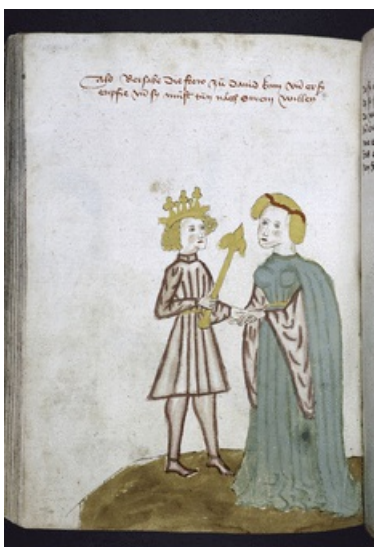 Also Bersabe die frow zů dauid kam vn̄ er sy
enpfie vn̄ sy můst tůn nāch sinem willen